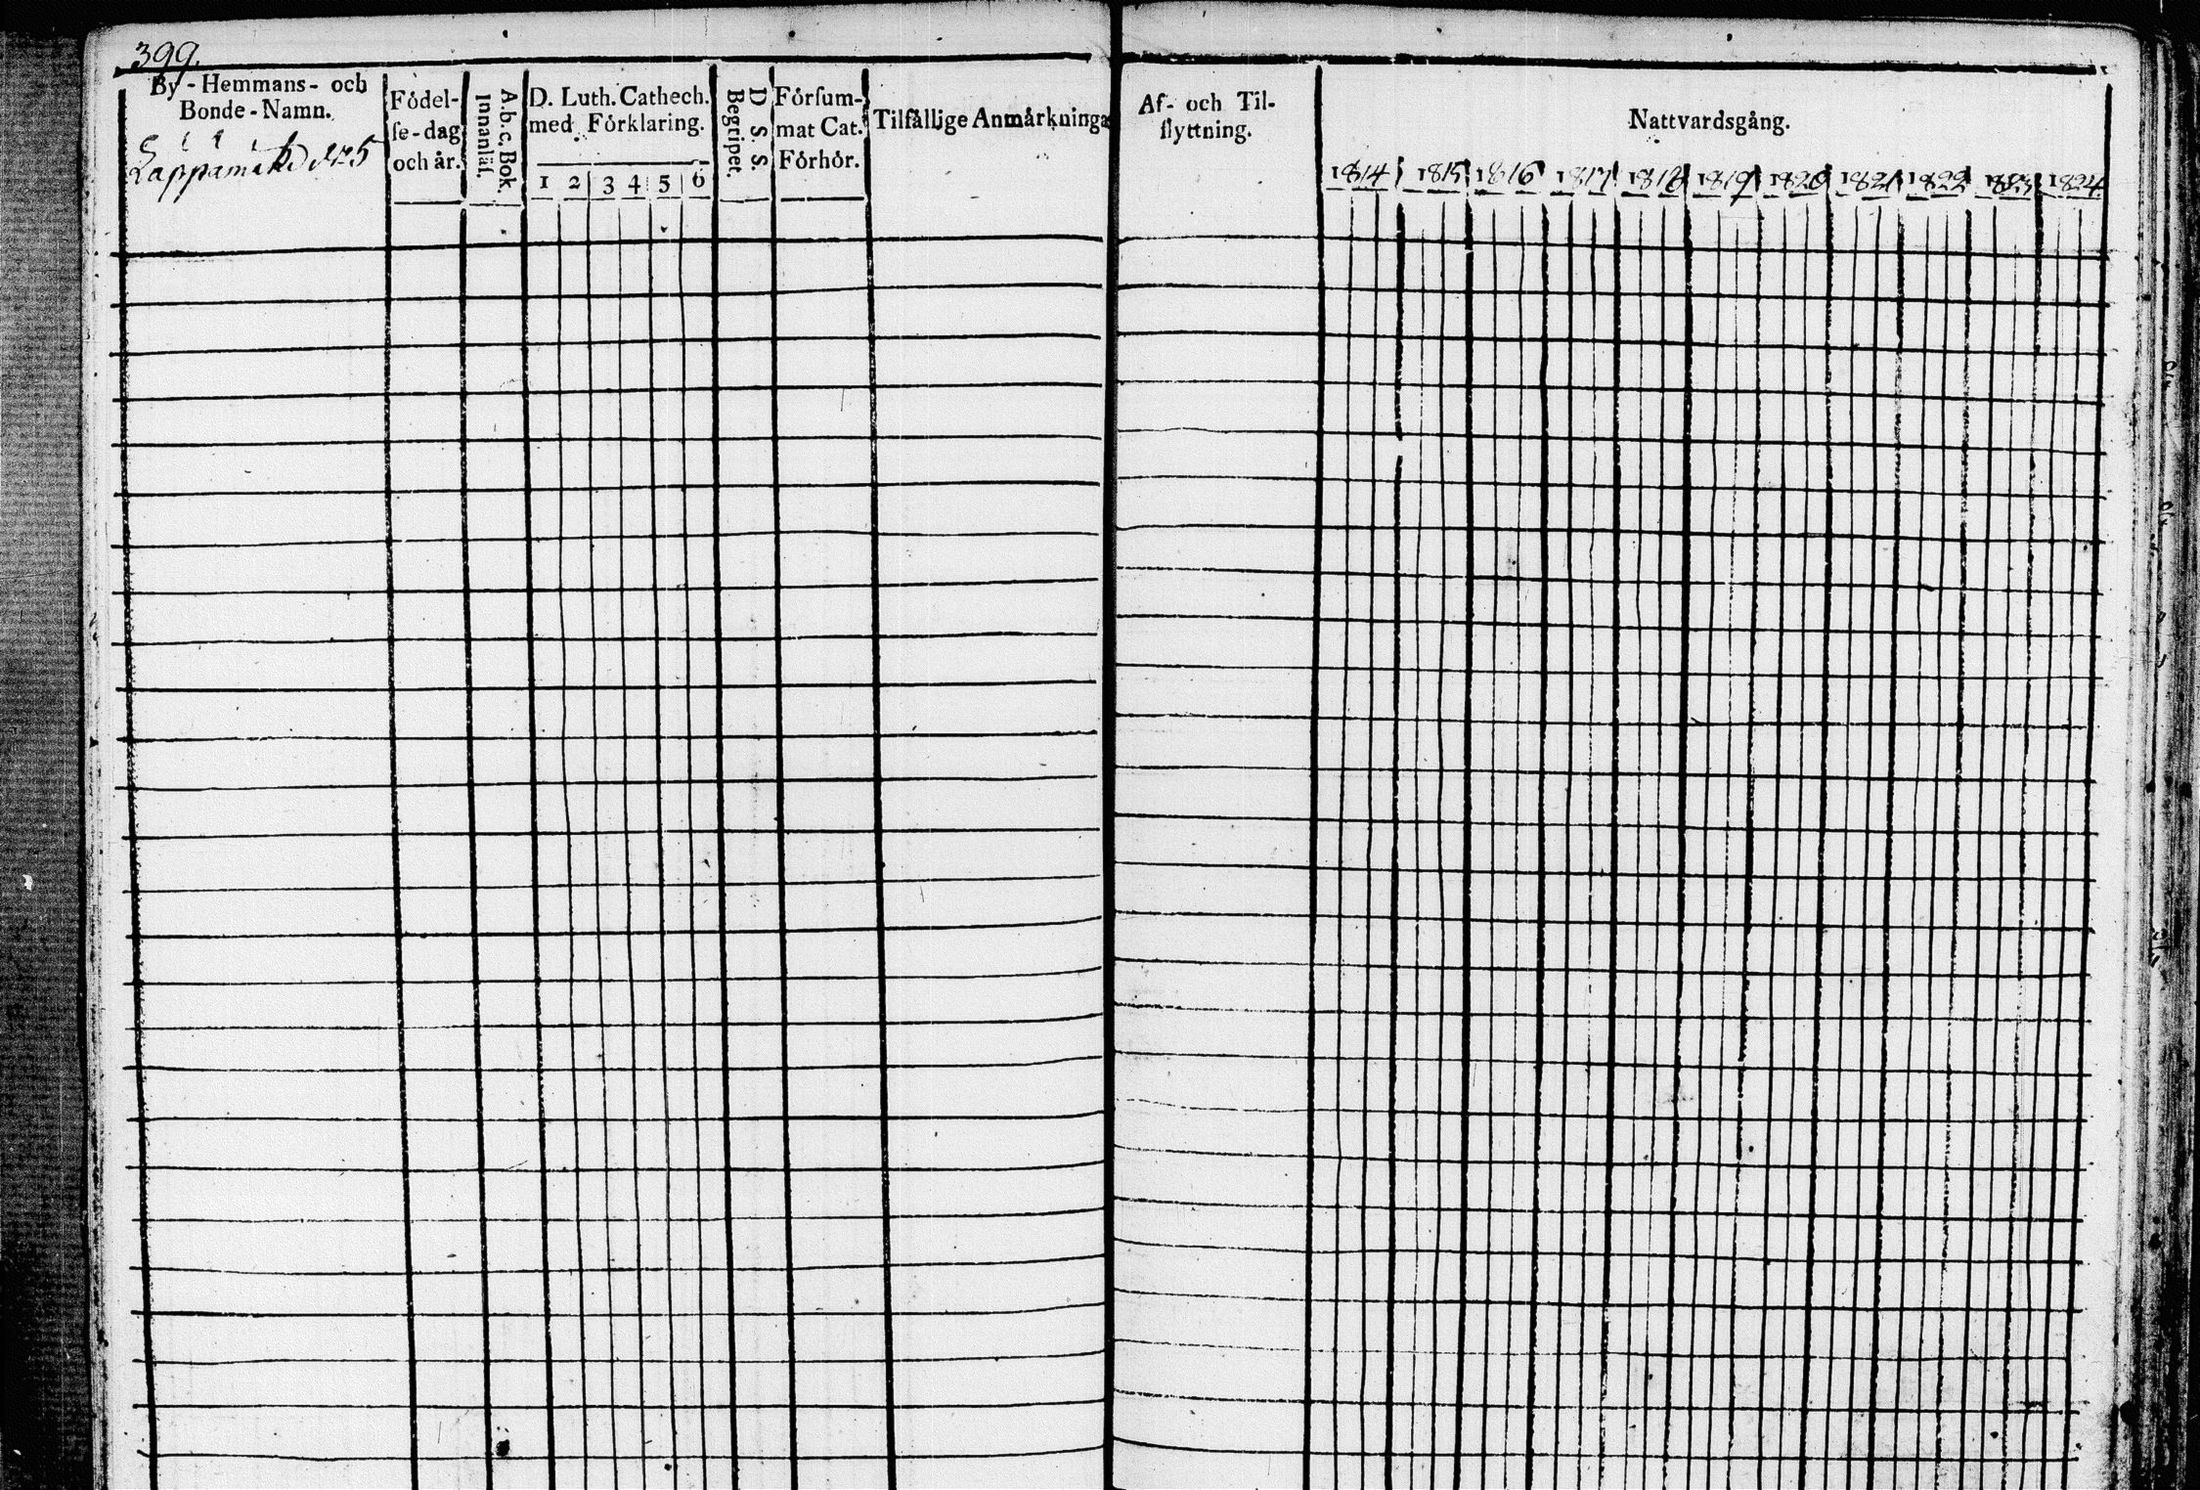 399.
By-Hemmans- och
Bonde-Namn.
Fódel-
ſe-dag
och år.
A.b.c. Bok.
Innanläſ.
D. Luth. Cathech.
med Fórklaring.
1 2 3 4 5 6
D. S. S.
Begripet.
Fórſum-
mat Cat.
Fórhór.
Tilfállige Anmárkninga
Af- och Til-
flyttning.
Nattvardsgång.
1814 1815 1816 1817 1818 1819 1820 1821 1822 1823 1824